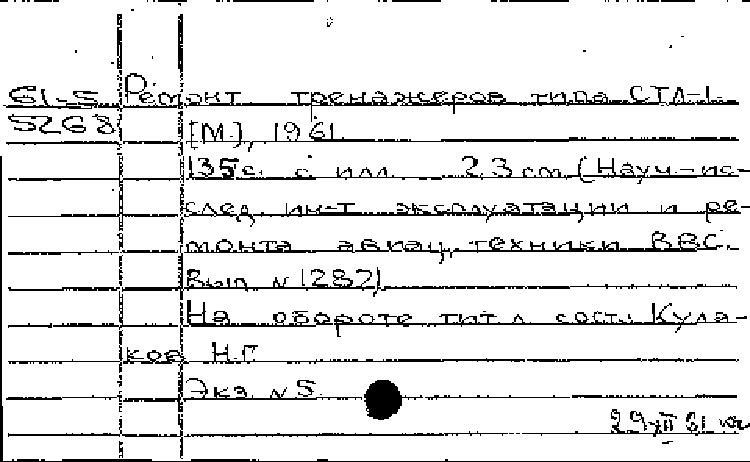 61-5 Ремонт тренажеров типа СТЛ-1.
5268 [М.], 1961.
135 с. с илл. 23 см. (Науч-ис-
след. ин-т эксплуатации и ре-
монта авиац. техники ВВС.
Вып. № 1287)
На обороте тит. л. сост.: Кула-
ков Н.Г.
Экз. № 5
29 XII 61